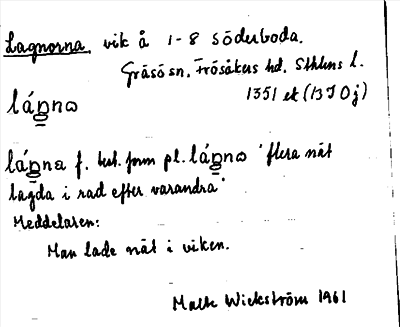 Lagnorna, vik å 1-8 Söderboda.
Gräsö sn. Frösåkers hd. Sthlms l.
1351 et (13I0j)
lágnɷ
lágna f. best. form pl. lágnɷ 'flera nät
lagda i rad efter varandra'
Meddelaren:
Man lade nät i viken.
Malte Wickström 1961